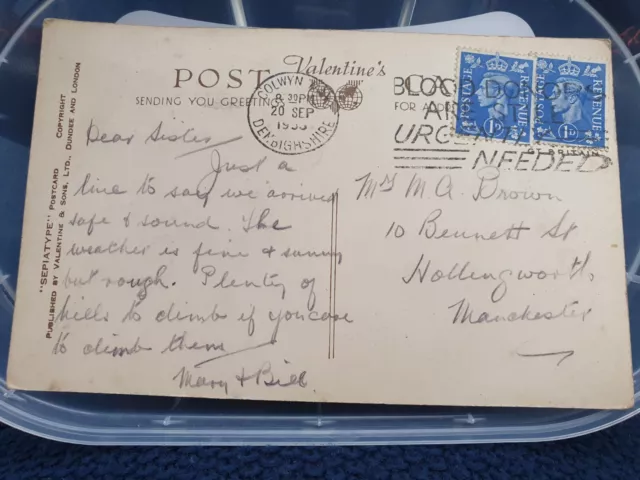 "SEPIATYPE" POSTCARD COPYRIGHT
PUBLISHED BY VALENTINE & SONS, LTD., DUNDEE AND LONDON
POST
Valentine's
SENDING YOU GREETINGS
FOR
COLWYN
8.30PM
20 SEP
DENBIGHSHIRE
BLOOD DONORS
ARE STILL
URGENTLY
NEEDED
POSTAGE REVENUE
1D
POSTAGE REVENUE
1D
Dear Sister
Just a
line to say we arrived
safe & sound. The
weather is fine & sunny
but rough. Plenty of
hills to climb if you care
to climb them
Mary & Bill.
Mrs M. A. Brown
10 Bennett St
Hollingworth,
Manchester